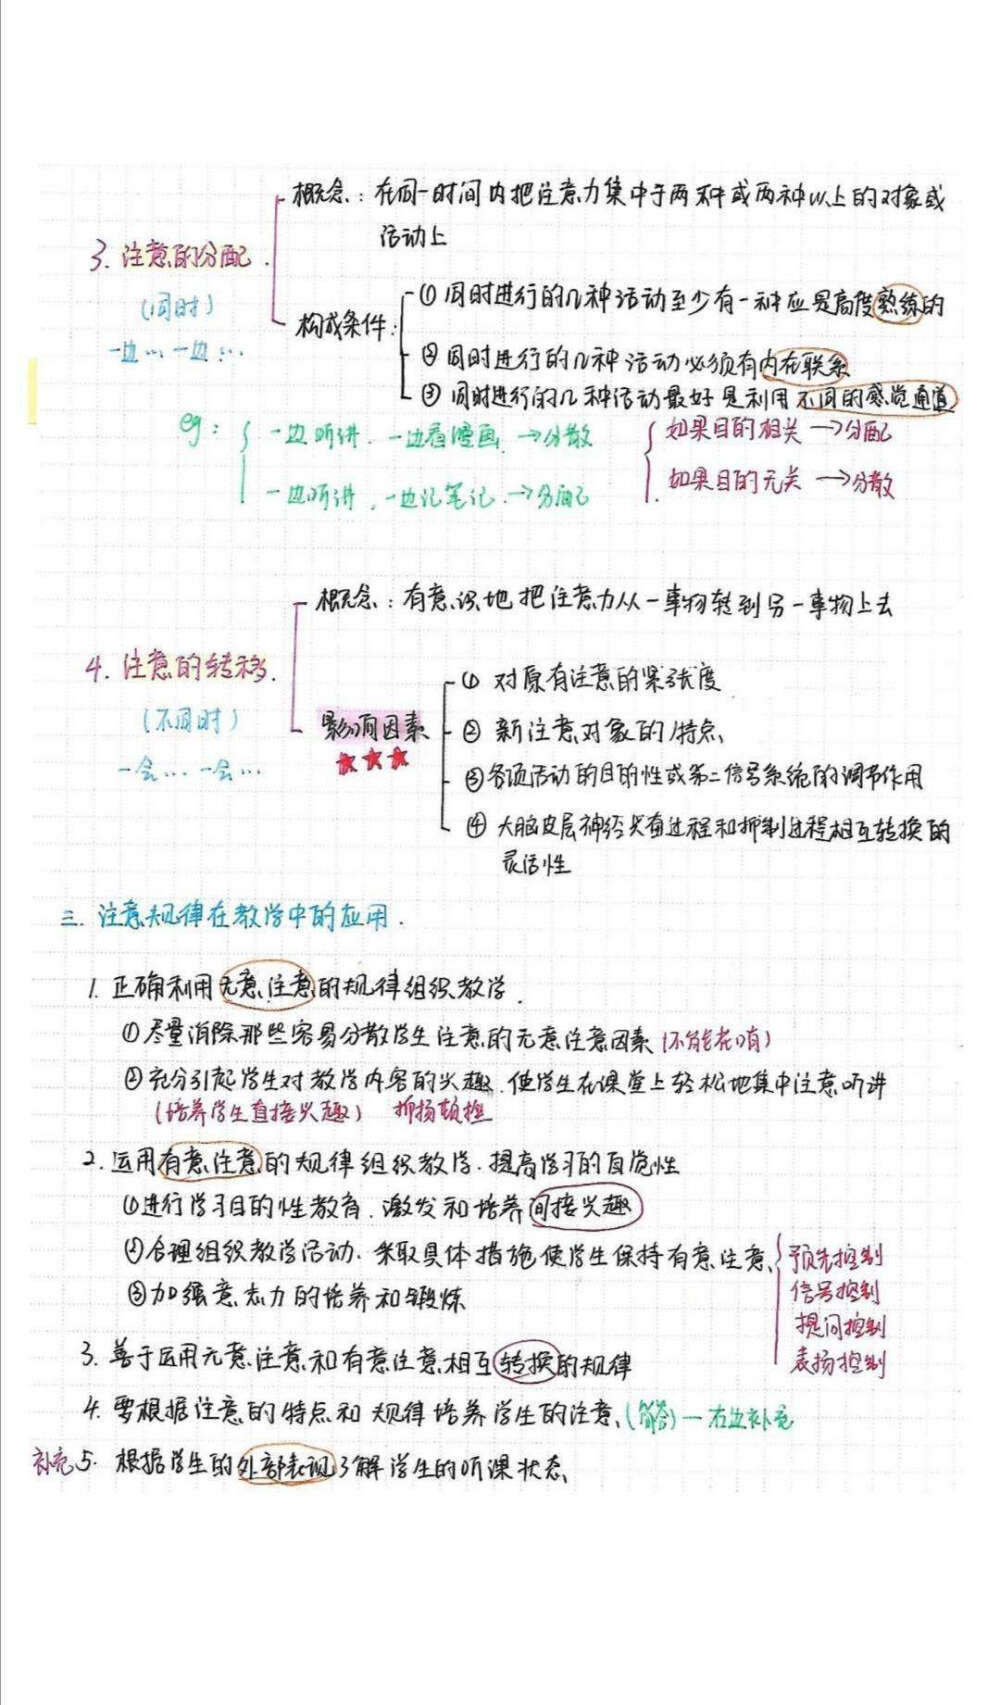 概念：在同一时间内把注意力集中于两种或两种以上的对象或
活动上
3. 注意的分配.
(同时)
一边… 一边…
构成条件：
① 同时进行的几种活动至少有一种应是高度熟练的
② 同时进行的几种活动必须有内在联系
③ 同时进行的几种活动最好是利用不同的感觉通道
eg：
一边听讲. 一边看漫画. →分散
一边听讲，一边记笔记. →分配
如果目的相关 →分配
如果目的无关 →分散
概念：有意识地把注意力从一事物转到另一事物上去
4. 注意的转移.
(不同时)
一会… 一会…
影响因素
★★★
① 对原有注意的紧张度
② 新注意对象的特点
③ 各项活动的目的性或第二信号系统的调节作用
④ 大脑皮层神经兴奋过程和抑制过程相互转换的
灵活性
三. 注意规律在教学中的应用.
1. 正确利用无意注意的规律组织教学.
①尽量消除那些容易分散学生注意的无意注意因素 (不能花哨)
②充分引起学生对教学内容的兴趣. 使学生在课堂上轻松地集中注意听讲
(培养学生直接兴趣) 抑扬顿挫
2. 运用有意注意的规律组织教学. 提高学习的自觉性
①进行学习目的性教育. 激发和培养间接兴趣
②合理组织教学活动. 采取具体措施使学生保持有意注意
③加强意志力的培养和锻炼
预先控制
信号控制
提问控制
表扬控制
3. 善于运用无意注意和有意注意相互转换的规律
4. 要根据注意的特点和规律培养学生的注意 (简答) — 右边补充
补充 5. 根据学生的外部表现了解学生的听课状态